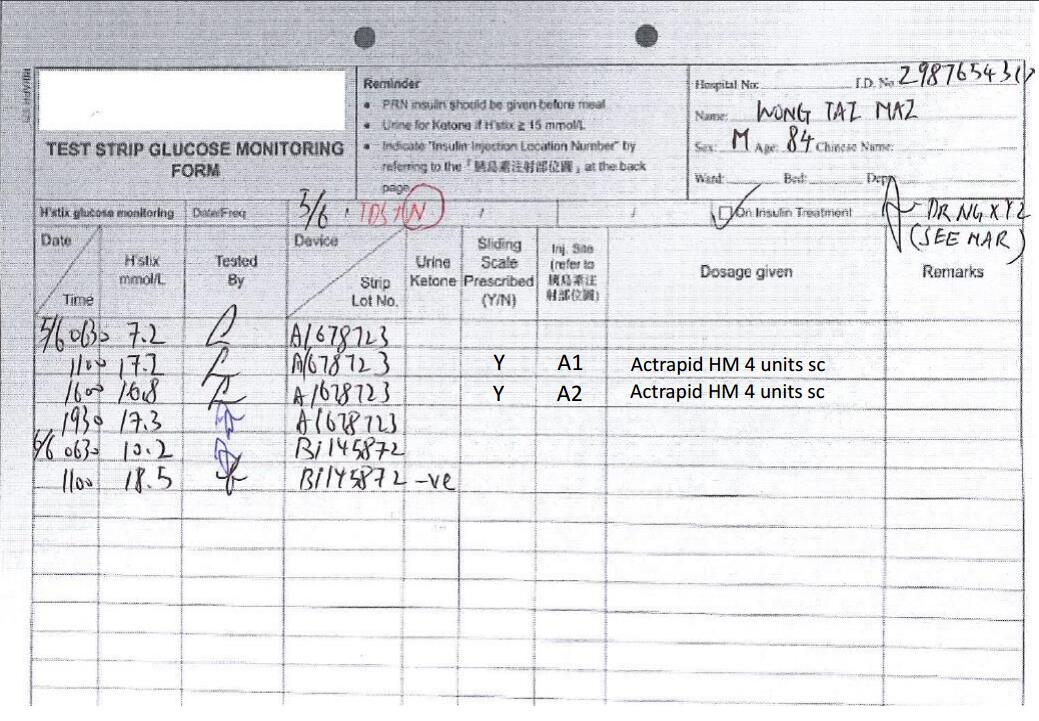 Reminder
• PRN insulin should be given before meal
• Urine for Ketone if H'stix ≥ 15 mmol/L
• Indicate "Insulin Injection Location Number" by
referring to the「胰島素注射部位圖」at the back
page
TEST STRIP GLUCOSE MONITORING
FORM
Hospital No: I.D. No 29876543()
Name: WONG TAI MAI
Sex: M Age: 84 Chinese Name:
Ward: Bed: Dept
H'stix glucose monitoring Date/Freq 5/6 / TDS + N / / On Insulin Treatment
DR NG, XYZ
(SEE MAR)
Date Time H'stix mmol/L Tested By Device Strip Lot No. Urine Ketone Sliding Scale Prescribed (Y/N) Inj. Site (refer to 胰島素注射部位圖) Dosage given Remarks
5/6 0630 7.2 A1678723
1100 17.2 A1678723 Y A1 Actrapid HM 4 units sc
1600 16.8 A1678723 Y A2 Actrapid HM 4 units sc
1930 17.3 A1678723
6/6 0630 10.2 B1145872
1100 18.5 B1145872 -ve